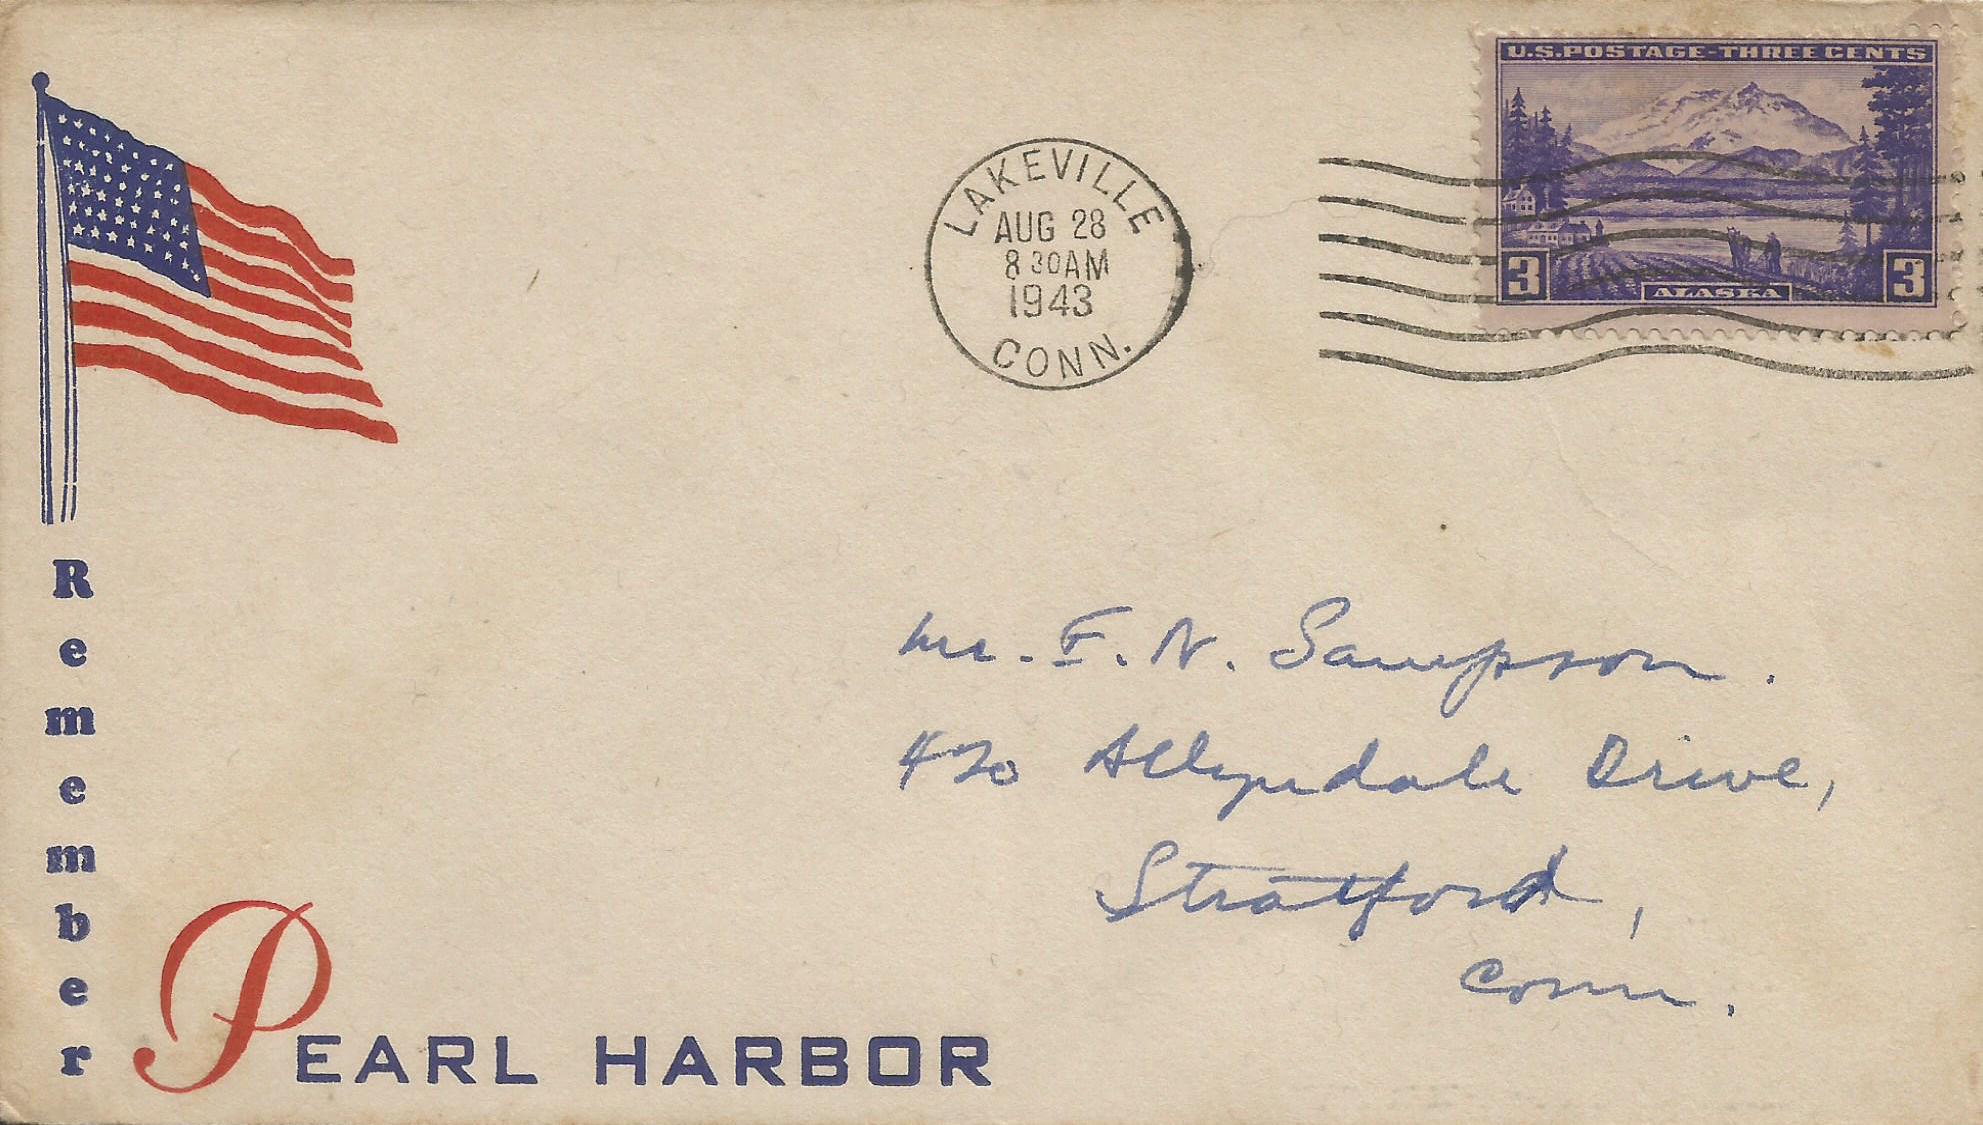 U.S. POSTAGE - THREE CENTS
3 ALASKA 3
LAKEVILLE
AUG 28
8 30AM
1943
CONN.
Mr. F. N. Sampson.
420 Allyndale Drive,
Stratford,
Conn.
Remember
PEARL HARBOR